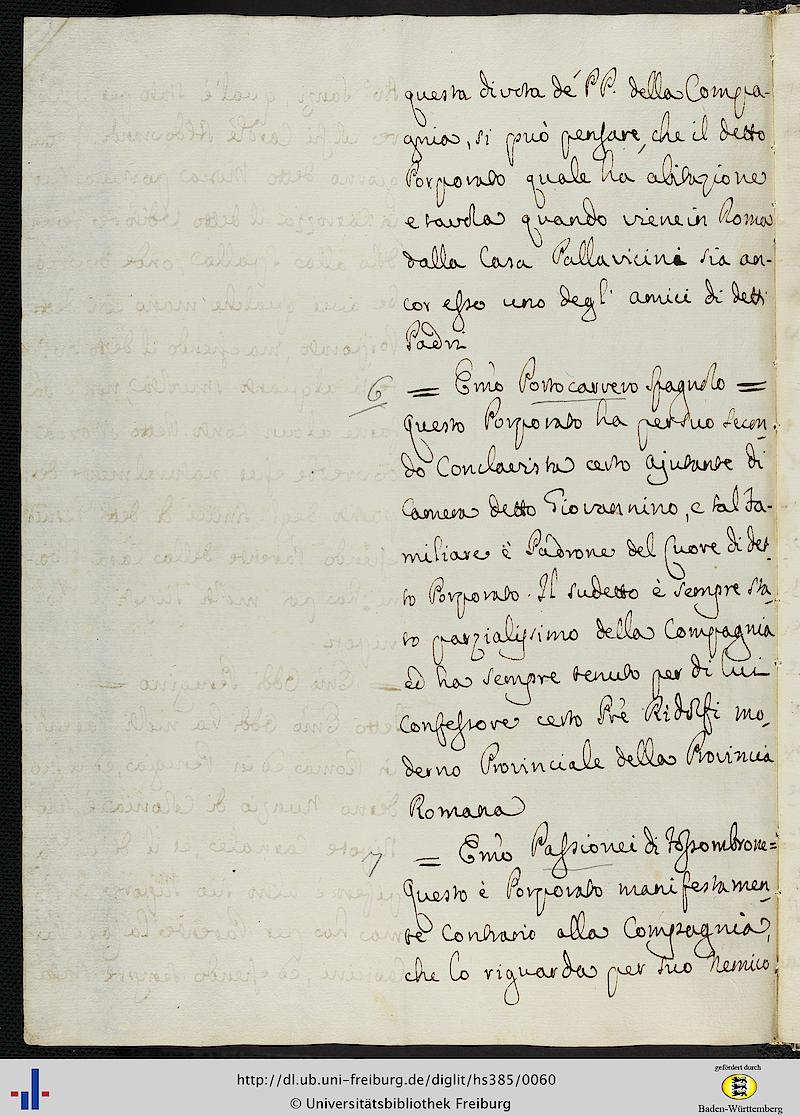 questa divota de' PP. della Compa-
gnia, si può pensare, che il detto
Porporato quale ha abitazione
e tavola quando viene in Roma
dalla Casa Pallavicini sia an-
cor esso uno degl' amici di detti
Padri
6 = Emo Portocarrero Spagnolo =
Questo Porporato ha per suo secon-
do Conclavista certo Ajutante di
Camera detto Giovannino, e tal fa-
miliare è Padrone del Cuore di det-
to Porporato. Il sudetto è sempre sta-
to parzialissimo della Compagnia
ed ha sempre tenuto per di lui
Confessore certo Prê Ridolfi mo-
derno Provinciale della Provincia
Romana
7 = Emo Passionei di Fossombrone =
Questo è Porporato manifestamen-
te Contrario alla Compagnia,
che lo riguarda per suo Nemico
http://dl.ub.uni-freiburg.de/diglit/hs385/0060
© Universitätsbibliothek Freiburg
gefördert durch
Baden-Württemberg